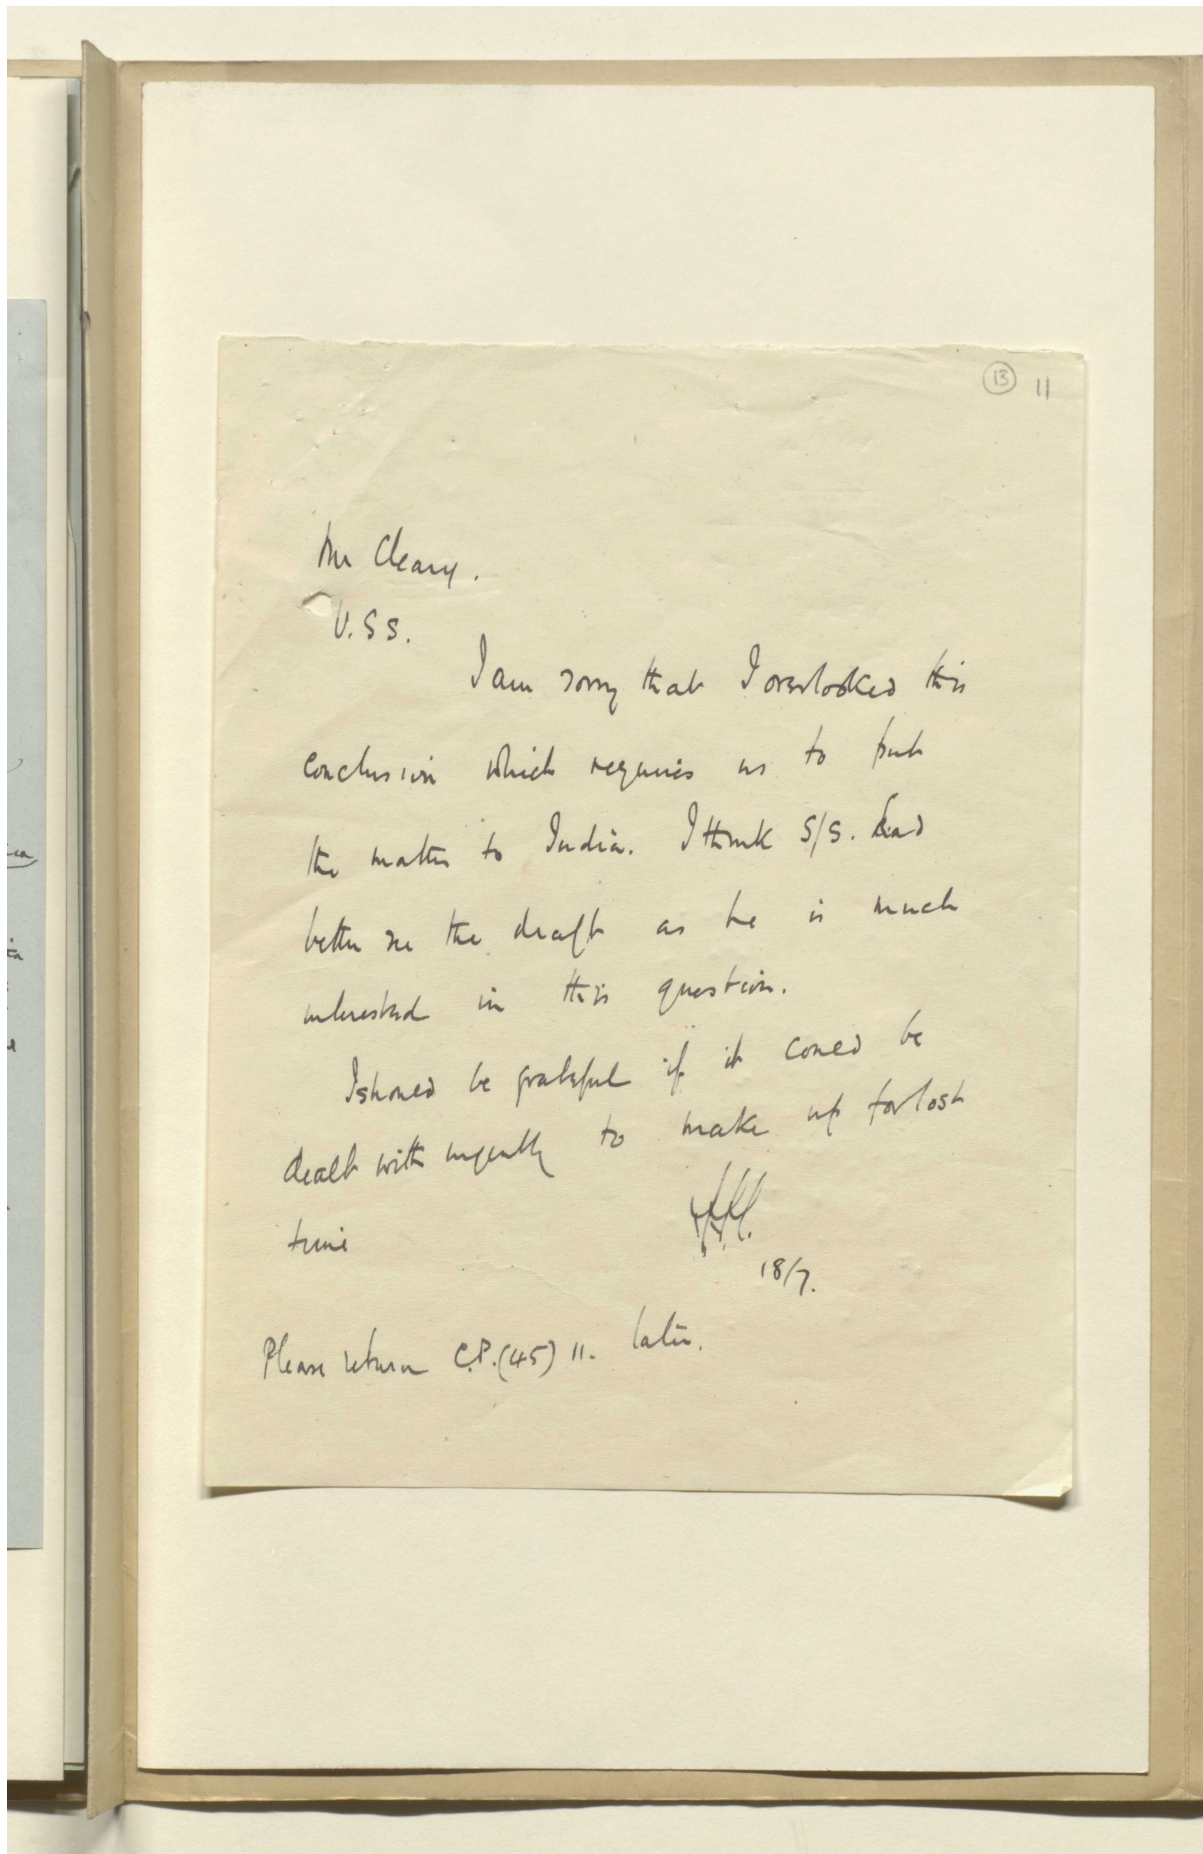 13 11
Mr Cleary.
U.S S.
I am sorry that I overlooked this
conclusion which requires us to put
the matter to India. I think S/S. had
better see the draft as he is much
interested in this question.
I should be grateful if it could be
dealt with urgently to make up for lost
time
18/7.
Please return C.P.(45) 11. later.